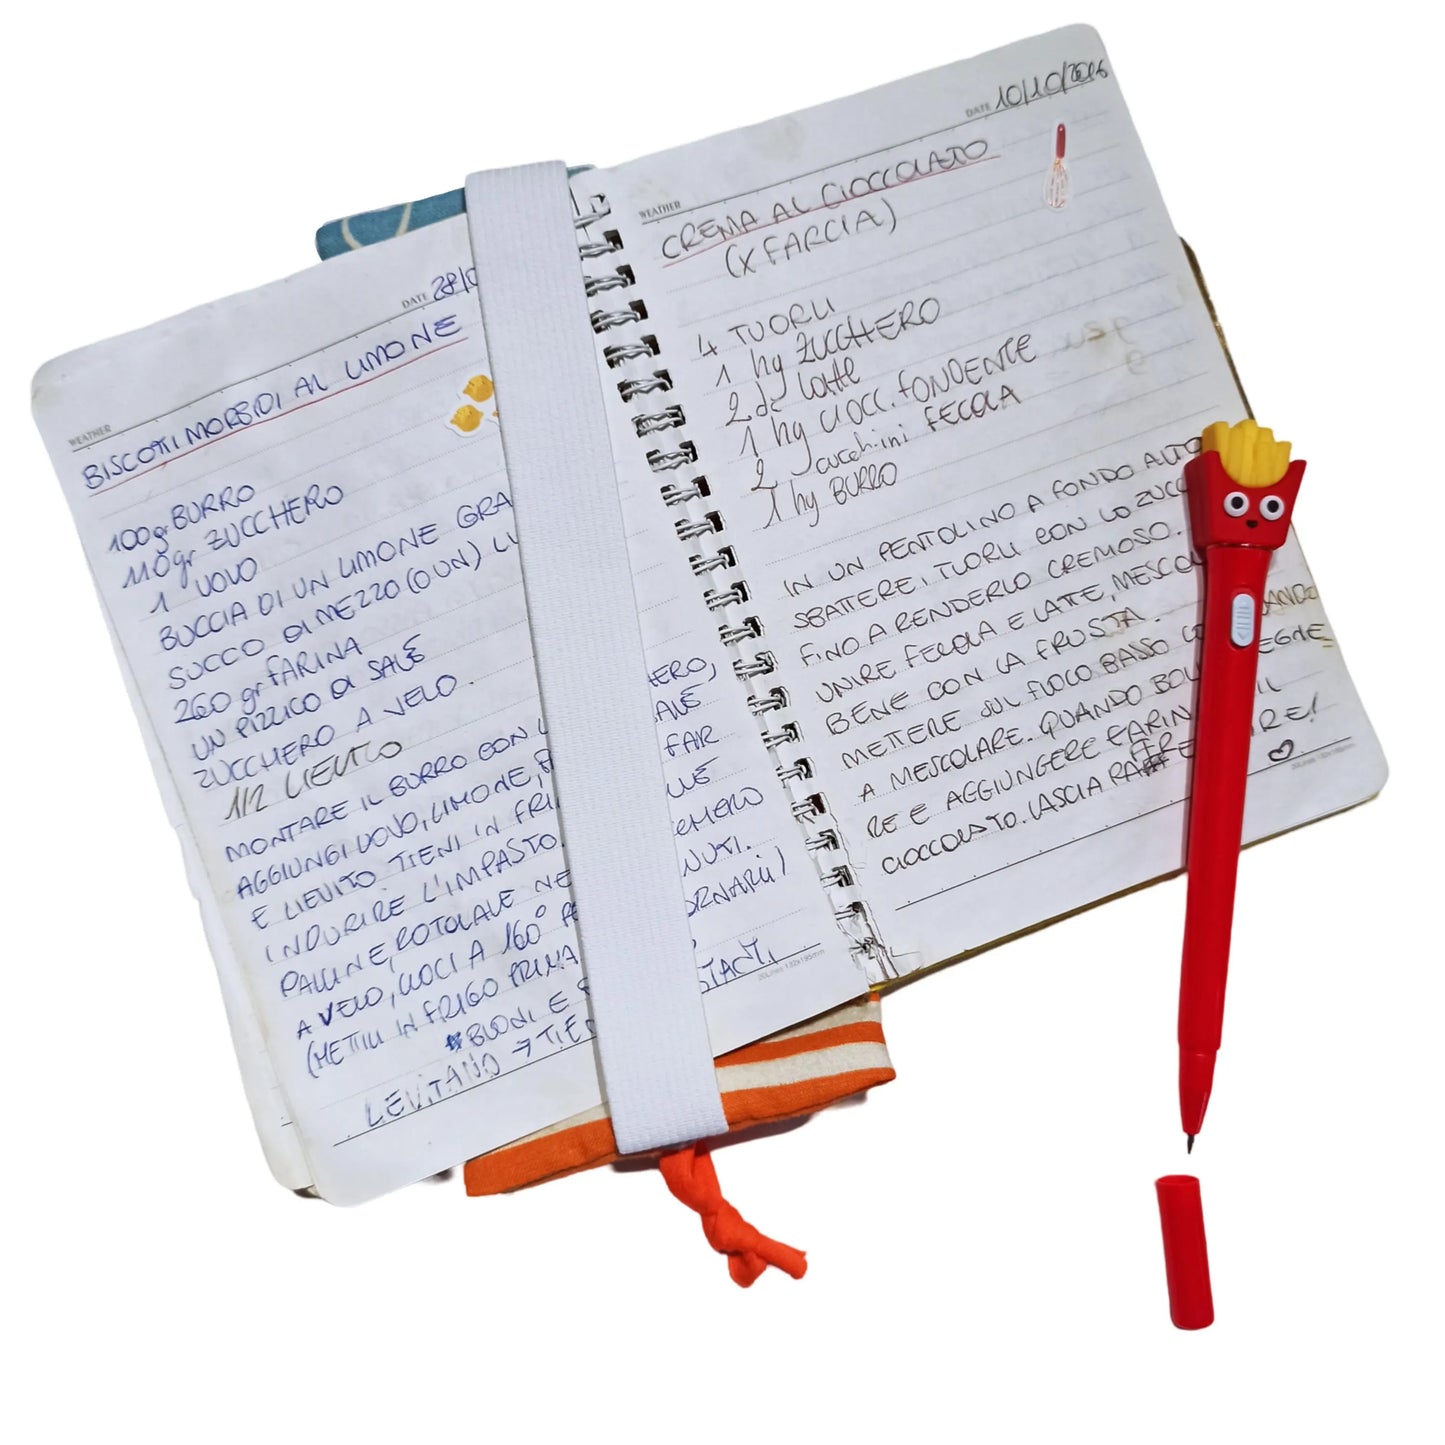 WEATHER
DATE 28/0
BISCOTTI MORBIDI AL LIMONE
100gr BURRO
110gr ZUCCHERO
1 UOVO
BUCCIA DI UN LIMONE GRA
SUCCO DI MEZZO (O UN) LI
260 gr FARINA
UN PIZZICO DI SALE
ZUCCHERO A VELO.
1/2 LIEVITO
MONTARE IL BURRO CON L ERO,
AGGIUNGI UOVO, LIMONE, ALE
E LIEVITO TIENI IN FRI FAR
INDURIRE L'IMPASTO.
PALLINE, ROTOLALE NE CHERO
A VELO, CUOCI A 160° PE NUTI.
(METTILI IN FRIGO PRIMA ORNARLI)
BUONI E
LEVITANO → TIE STANTI
30Lines 132x195mm
WEATHER
DATE 10/10/2016
CREMA AL CIOCCOLATO
(X FARCIA)
4 TUORLI
1 hg ZUCCHERO
2 dl latte
1 hg CIOCC. FONDENTE
2 cucchini FECOLA
1 hg BURRO
IN UN PENTOLINO A FONDO ALTO
SBATTERE I TUORLI CON LO ZUCC
FINO A RENDERLO CREMOSO.
UNIRE FECOLA E LATTE, MESCOL
BENE CON LA FRUSTA.
METTERE SUL FUOCO BASSO CO ANDO
A MESCOLARE. QUANDO BOL EGNE
RE E AGGIUNGERE FARIN IL
CIOCCOLATO. LASCIA RAFFRE RE!
30Lines 132x195mm